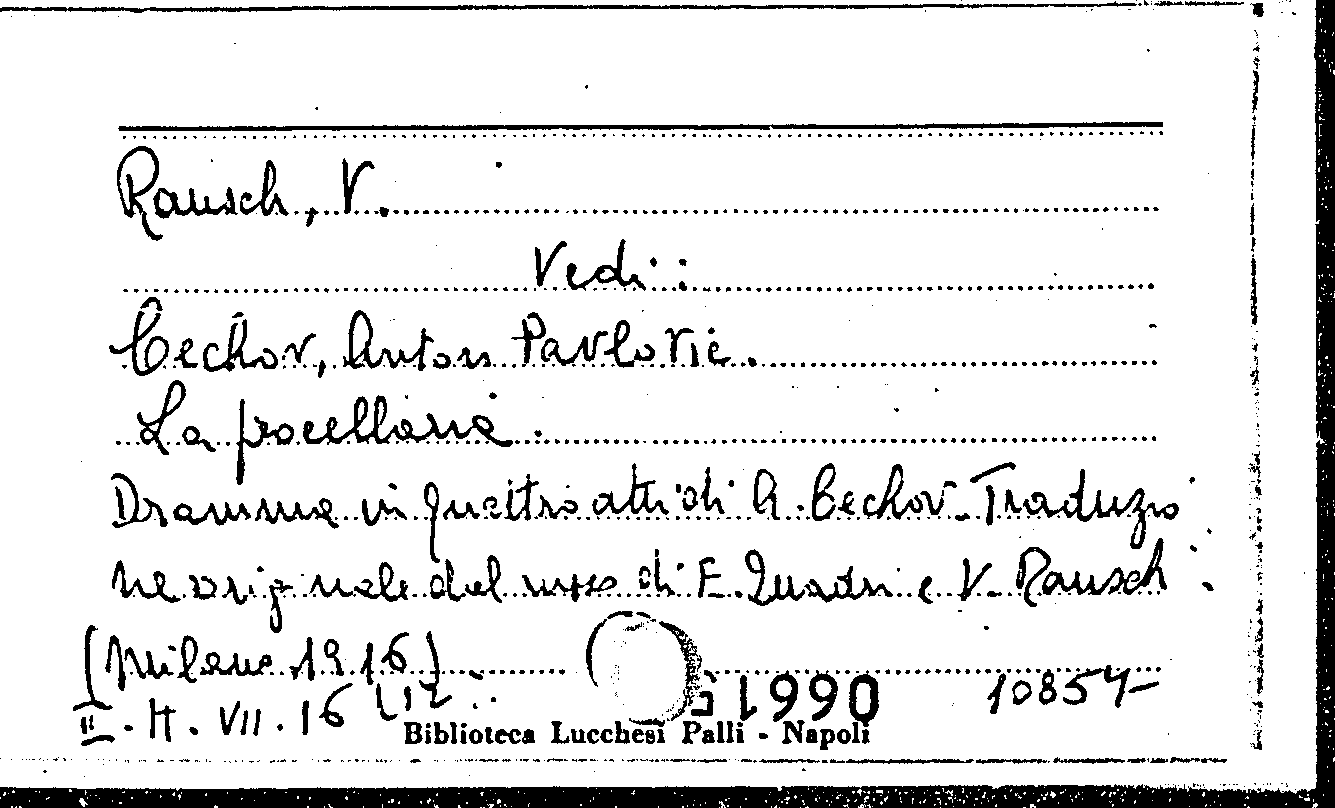 Rausch, V.
Vedi:
Cechov, Anton Pavlovic.
La procellaria.
Dramma in quattro atti di A. Cechov - Traduzio
ne originale dal russo di E. Quadri e V. Rausch.
(Milano 1916)
II. H. VII. 16
10857-
Biblioteca Lucchesi Palli - Napoli